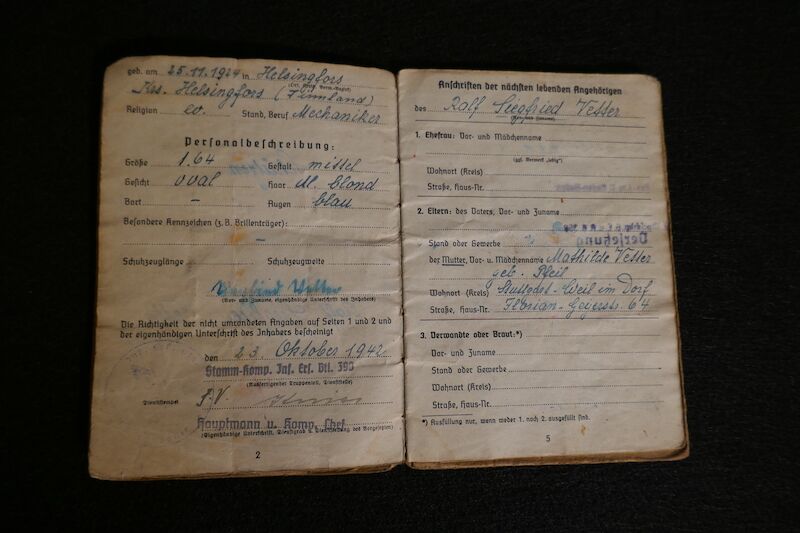 geb. am 25.11.1924 in Helsingfors
Krs. Helsingfors (Finnland)
Religion ev. Stand, Beruf Mechaniker
Personalbeschreibung:
Größe 1.64 Gestalt mittel
Gesicht oval Haar dl. blond
Bart – Augen blau
Besondere Kennzeichen (z. B. Brillenträger):
–
Schuhzeuglänge Schuhzeugweite
(Vor- und Zuname, eigenhändige Unterschrift des Inhabers)
Die Richtigkeit der nicht umrandeten Angaben auf Seiten 1 und 2 und
der eigenhändigen Unterschrift des Inhabers bescheinigt
den 23. Oktober 1942
Stamm-Komp. Inf. Ers. Btl. 390
(Ausfertigender Truppenteil, Dienststelle)
Dienststempel
Hauptmann u. Komp. Chef
(Eigenhändige Unterschrift, Dienstgrad u. Dienststellung des Vorgesetzten)
2
Anschriften der nächsten lebenden Angehörigen
des Ralf Siegfried Vetter
(Vor- und Zuname)
1. Ehefrau: Vor- und Mädchenname
(ggf. Vermerk „ledig“)
Wohnort (Kreis)
Straße, Haus-Nr.
2. Eltern: des Vaters, Vor- und Zuname
Stand oder Gewerbe
der Mutter, Vor- u. Mädchenname Mathilde Vetter
geb. Pfeil
Wohnort (Kreis) Stuttgart-Weil im Dorf
Straße, Haus-Nr. Florian-Geyerstr. 64
3. Verwandte oder Braut:*)
Vor- und Zuname
Stand oder Gewerbe
Wohnort (Kreis)
Straße, Haus-Nr.
*) Ausfüllung nur, wenn weder 1. noch 2. ausgefüllt sind.
5